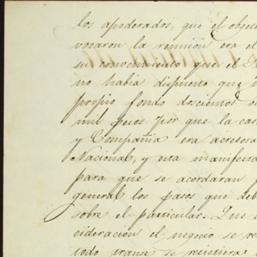 los apoderados, que el obje
vocaron la reunión era el
su conocimiento que el
no había dispuesto que
propio fondo doscientos
mil pesos por que la cas
y Compañía era acreedora
Nacional, y esta manifesta
para que se acordaran
general los pasos que deb
sobre el particular. Que
sideración el negocio se re
todo trance se resistiera